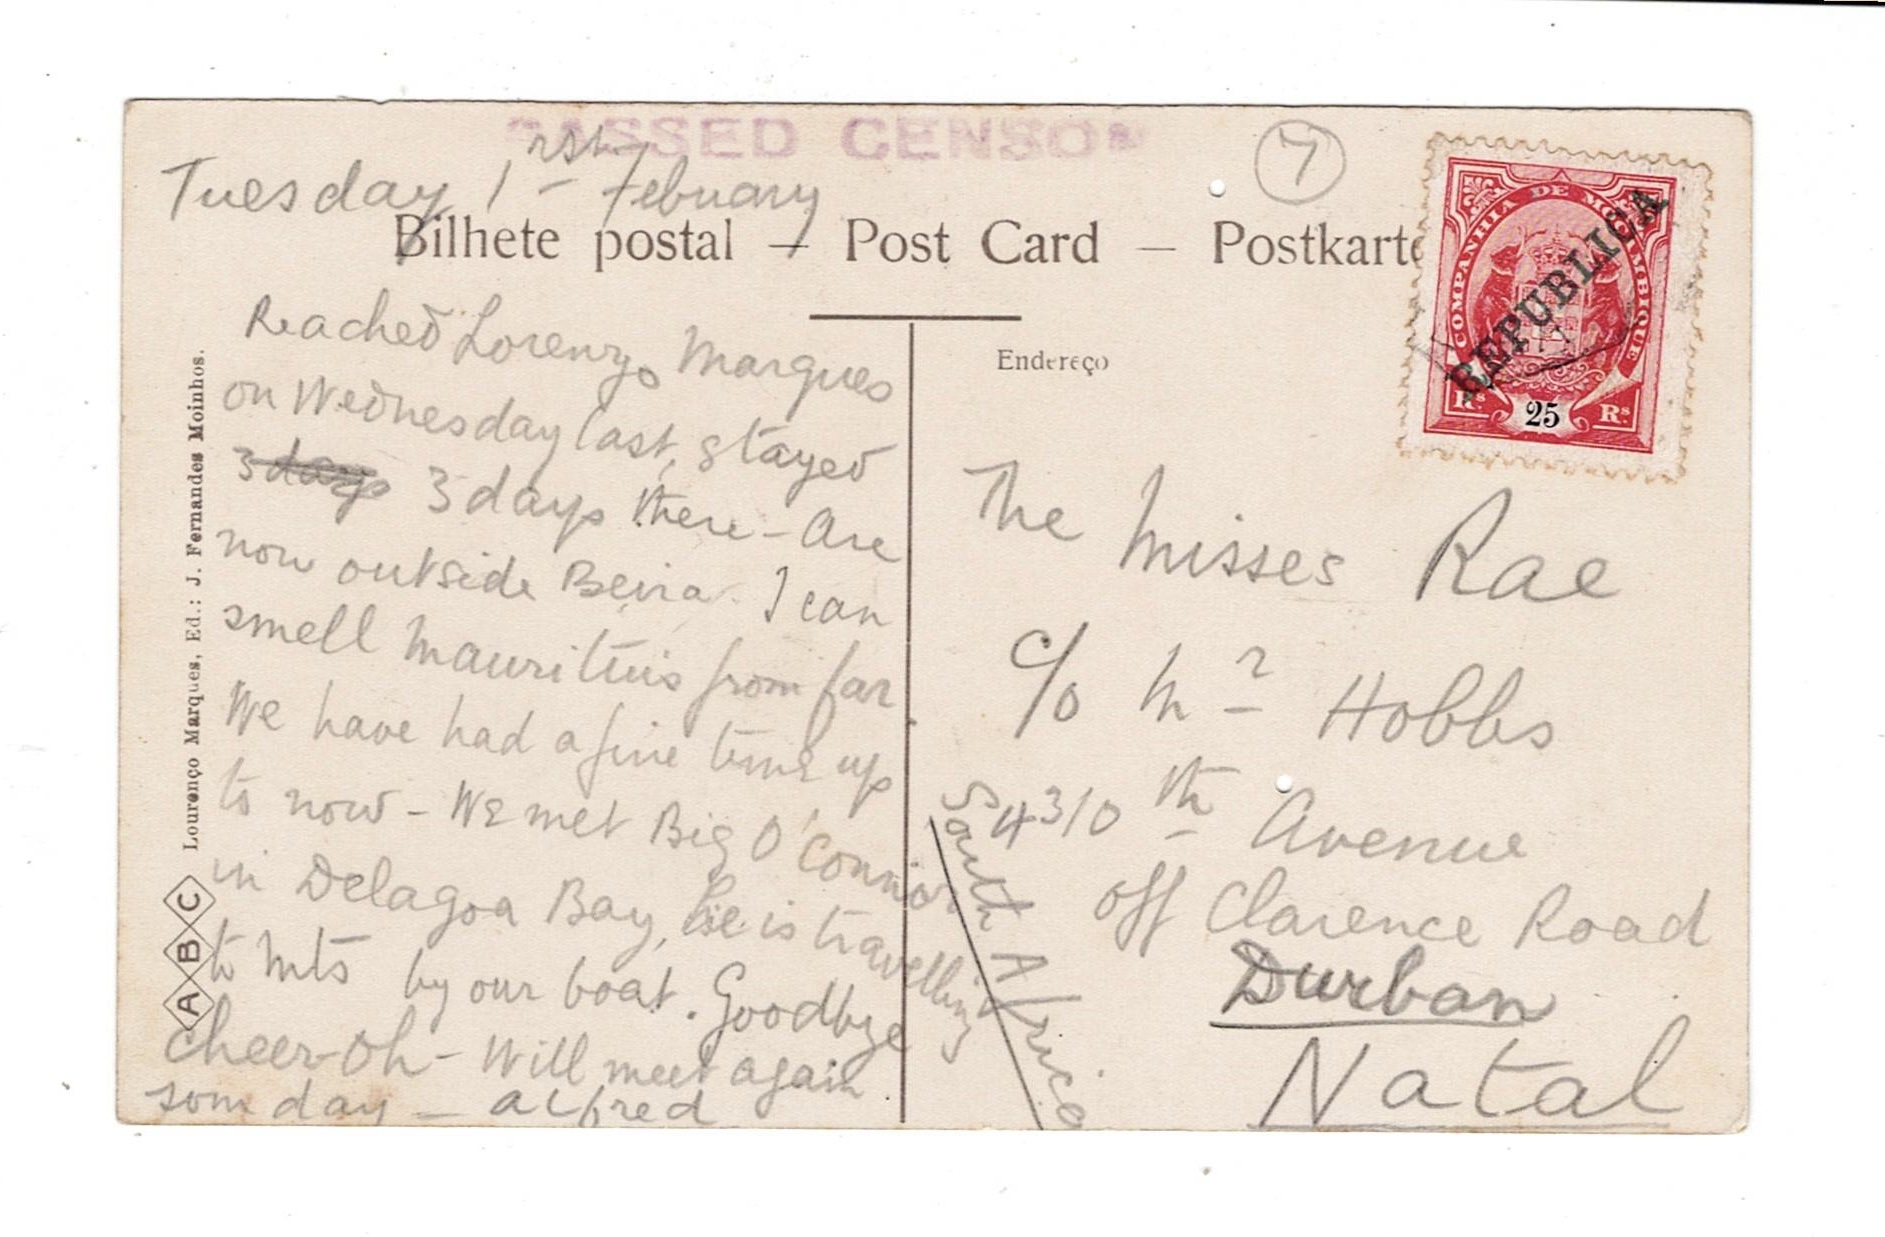 PASSED CENSOR
7
Tuesday 1rst Febuary
Bilhete postal — Post Card — Postkarte
Reached Lorenzo Marques
on Wednesday last, stayed
3 days 3 days there - Are
now outside Beira. I can
smell Mauritius from far
We have had a fine time up
to now - We met Big O'Connor
in Delagoa Bay, he is travelling
to Mts by our boat. Goodbye
cheer-oh - Will meet again
some day - Alfred
Lourenço Marques, Ed.: J. Fernandes Moinhos.
A B C
Endereço
COMPANHIA DE MOÇAMBIQUE
REPUBLICA
Rs 25 Rs
The Misses Rae
c/o Mr Hobbs
43/10th Avenue
off Clarence Road
Durban
Natal
South Africa